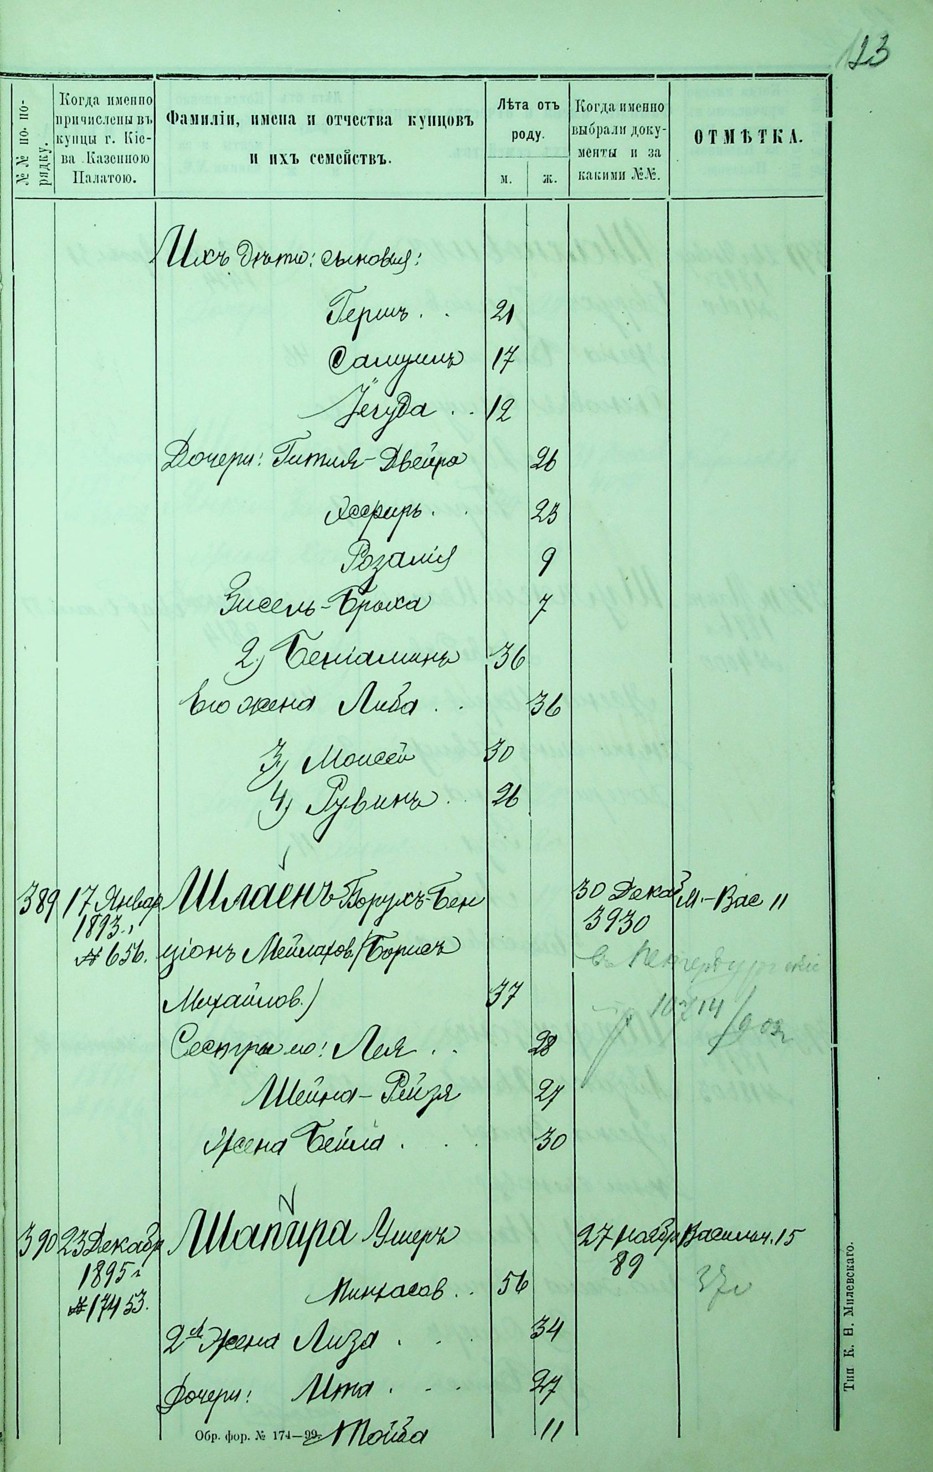 123
№№ по по-
рядку.
Когда именно
причислены въ
купцы г. Кіе-
ва Казенною
Палатою.
Фамиліи, имена и отчества купцовъ
и ихъ семействъ.
Лѣта отъ
роду.
м.
ж.
Когда именно
выбрали доку-
менты и за
какими №№.
ОТМѢТКА.
Ихъ дѣти: сыновья:
Гершъ . . 21
Самуилъ 17
Іегуда . . 12
Дочери: Гитля-Двейра 26
Эсфирь . . 23
Розалія 9
Зисель-Броха 7
2) Беніаминъ 36
Его жена Либа . . 36
3) Моисей 30
4) Рувинъ . 26
389 17 Январ Шлаенъ Борухъ-Бен 30 Декаб М.-Вас 11
1893 г. 3930
№ 656. ціонъ Мейлахов. (Борисъ
въ Петербургскіе
Михайлов.) 37
Сестры его: Лея . . 28
Шейна-Рейзя 21
Жена Бейла . . 30
390 23 Декабр Шапира Ушеръ 27 Ноябр Васильк. 15
1895 г. 89
№ 17453. Пинхасов. . 56
2я Жена Лиза . . 34
Дочери: Ита . . 27
Тойба 11
Обр. фор. № 174—99
Тип К. Н. Милевскаго.